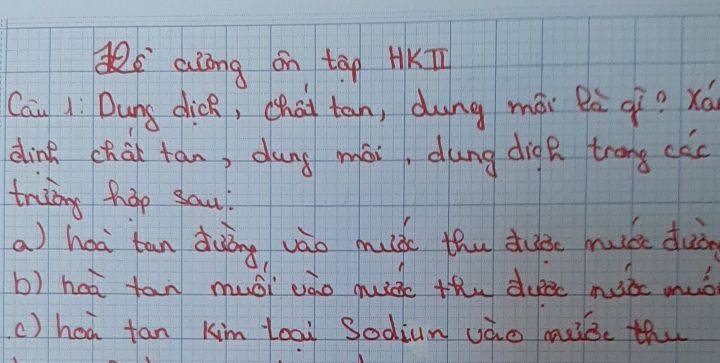 Đề cương ôn tập HKII
Câu 1: Dung dịch, chất tan, dung môi là gì? Xá
định chất tan, dung môi, dung dịch trong các
trường hợp sau:
a) hoà tan đường vào nước thu được nước đường
b) hoà tan muối vào nước thu được nước muối
c) hoà tan kim loại Sodium vào nước thu